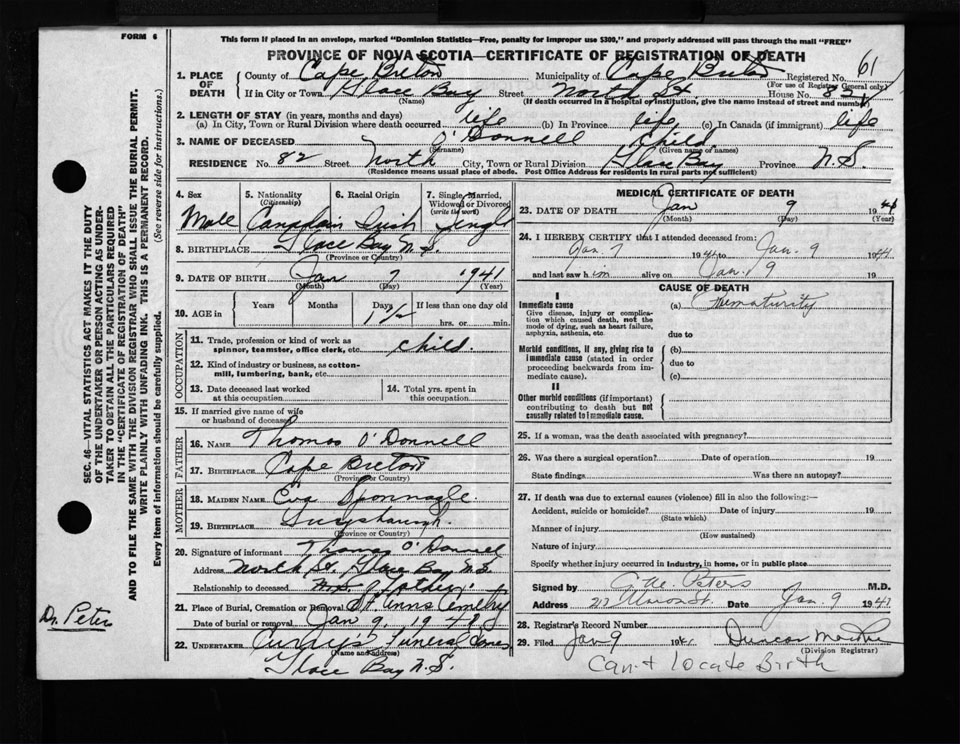 FORM 6
This form if placed in an envelope, marked "Dominion Statistics—Free, penalty for improper use $300," and properly addressed will pass through the mail "FREE"
PROVINCE OF NOVA SCOTIA—CERTIFICATE OF REGISTRATION OF DEATH
1. PLACE OF DEATH { County of Cape Breton Municipality of Cape Breton Registered No. 61
(For use of Registrar General only)
If in City or Town Glace Bay Street North St. House No. 82
(Name) (If death occurred in a hospital or institution, give the name instead of street and number)
2. LENGTH OF STAY (in years, months and days)
(a) In City, Town or Rural Division where death occurred life (b) In Province life (c) In Canada (if immigrant) life
3. NAME OF DECEASED O'Donnell Child
(Surname) (Given name or names)
RESIDENCE No. 82 Street North City, Town or Rural Division Glace Bay Province N.S.
(Residence means usual place of abode. Post Office Address for residents in rural parts not sufficient)
4. Sex Male
5. Nationality (Citizenship) Canadian
6. Racial Origin Irish
7. Single, Married, Widowed or Divorced (write the word) Single
8. BIRTHPLACE Glace Bay N.S.
(Province or Country)
9. DATE OF BIRTH Jan 7 1941
(Month) (Day) (Year)
10. AGE in { Years Months Days 1 1/2 If less than one day old
hrs. or min.
OCCUPATION
11. Trade, profession or kind of work as spinner, teamster, office clerk, etc. child.
12. Kind of industry or business, as cotton-mill, lumbering, bank, etc.
13. Date deceased last worked at this occupation
14. Total yrs. spent in this occupation
15. If married give name of wife or husband of deceased
FATHER
16. NAME Thomas O'Donnell
17. BIRTHPLACE Cape Breton
(Province or Country)
MOTHER
18. MAIDEN NAME Eva Sponnagle.
19. BIRTHPLACE Guysborough.
(Province or Country)
20. Signature of informant Thomas O'Donnel
Address North St. Glace Bay N.S.
Relationship to deceased Father
21. Place of Burial, Cremation or Removal St Anns Cemetry
Date of burial or removal Jan 9 1941
22. UNDERTAKER Curry's Funeral
(Name and address)
Glace Bay N.S.
MEDICAL CERTIFICATE OF DEATH
23. DATE OF DEATH Jan 9 1941
(Month) (Day) (Year)
24. I HEREBY CERTIFY that I attended deceased from:
Jan. 7 1941 to Jan. 9 1941
and last saw him alive on Jan. 9 19
CAUSE OF DEATH
I
Immediate cause
Give disease, injury or complication which caused death, not the mode of dying, such as heart failure, asphyxia, asthenia, etc.
(a) Prematurity
due to
Morbid conditions, if any, giving rise to immediate cause (stated in order proceeding backwards from immediate cause).
(b)
due to
(c)
II
Other morbid conditions (if important) contributing to death but not causally related to immediate cause.
25. If a woman, was the death associated with pregnancy?
26. Was there a surgical operation? Date of operation 19
State findings Was there an autopsy?
27. If death was due to external causes (violence) fill in also the following:—
Accident, suicide or homicide? Date of injury 19
(State which)
Manner of injury
(How sustained)
Nature of injury
Specify whether injury occurred in industry, in home, or in public place
Signed by Peters M.D.
Address Union St. Date Jan. 9 1941
28. Registrar's Record Number
29. Filed Jan 9 1941 Duncan
(Division Registrar)
Can't Locate Birth
SEC. 46—VITAL STATISTICS ACT MAKES IT THE DUTY
OF THE UNDERTAKER OR PERSON ACTING AS UNDER-
TAKER TO OBTAIN ALL THE PARTICULARS REQUIRED
IN THE "CERTIFICATE OF REGISTRATION OF DEATH"
AND TO FILE THE SAME WITH THE DIVISION REGISTRAR WHO SHALL ISSUE THE BURIAL PERMIT.
WRITE PLAINLY WITH UNFADING INK. THIS IS A PERMANENT RECORD.
Every item of information should be carefully supplied. (See reverse side for instructions.)
Dr. Peter